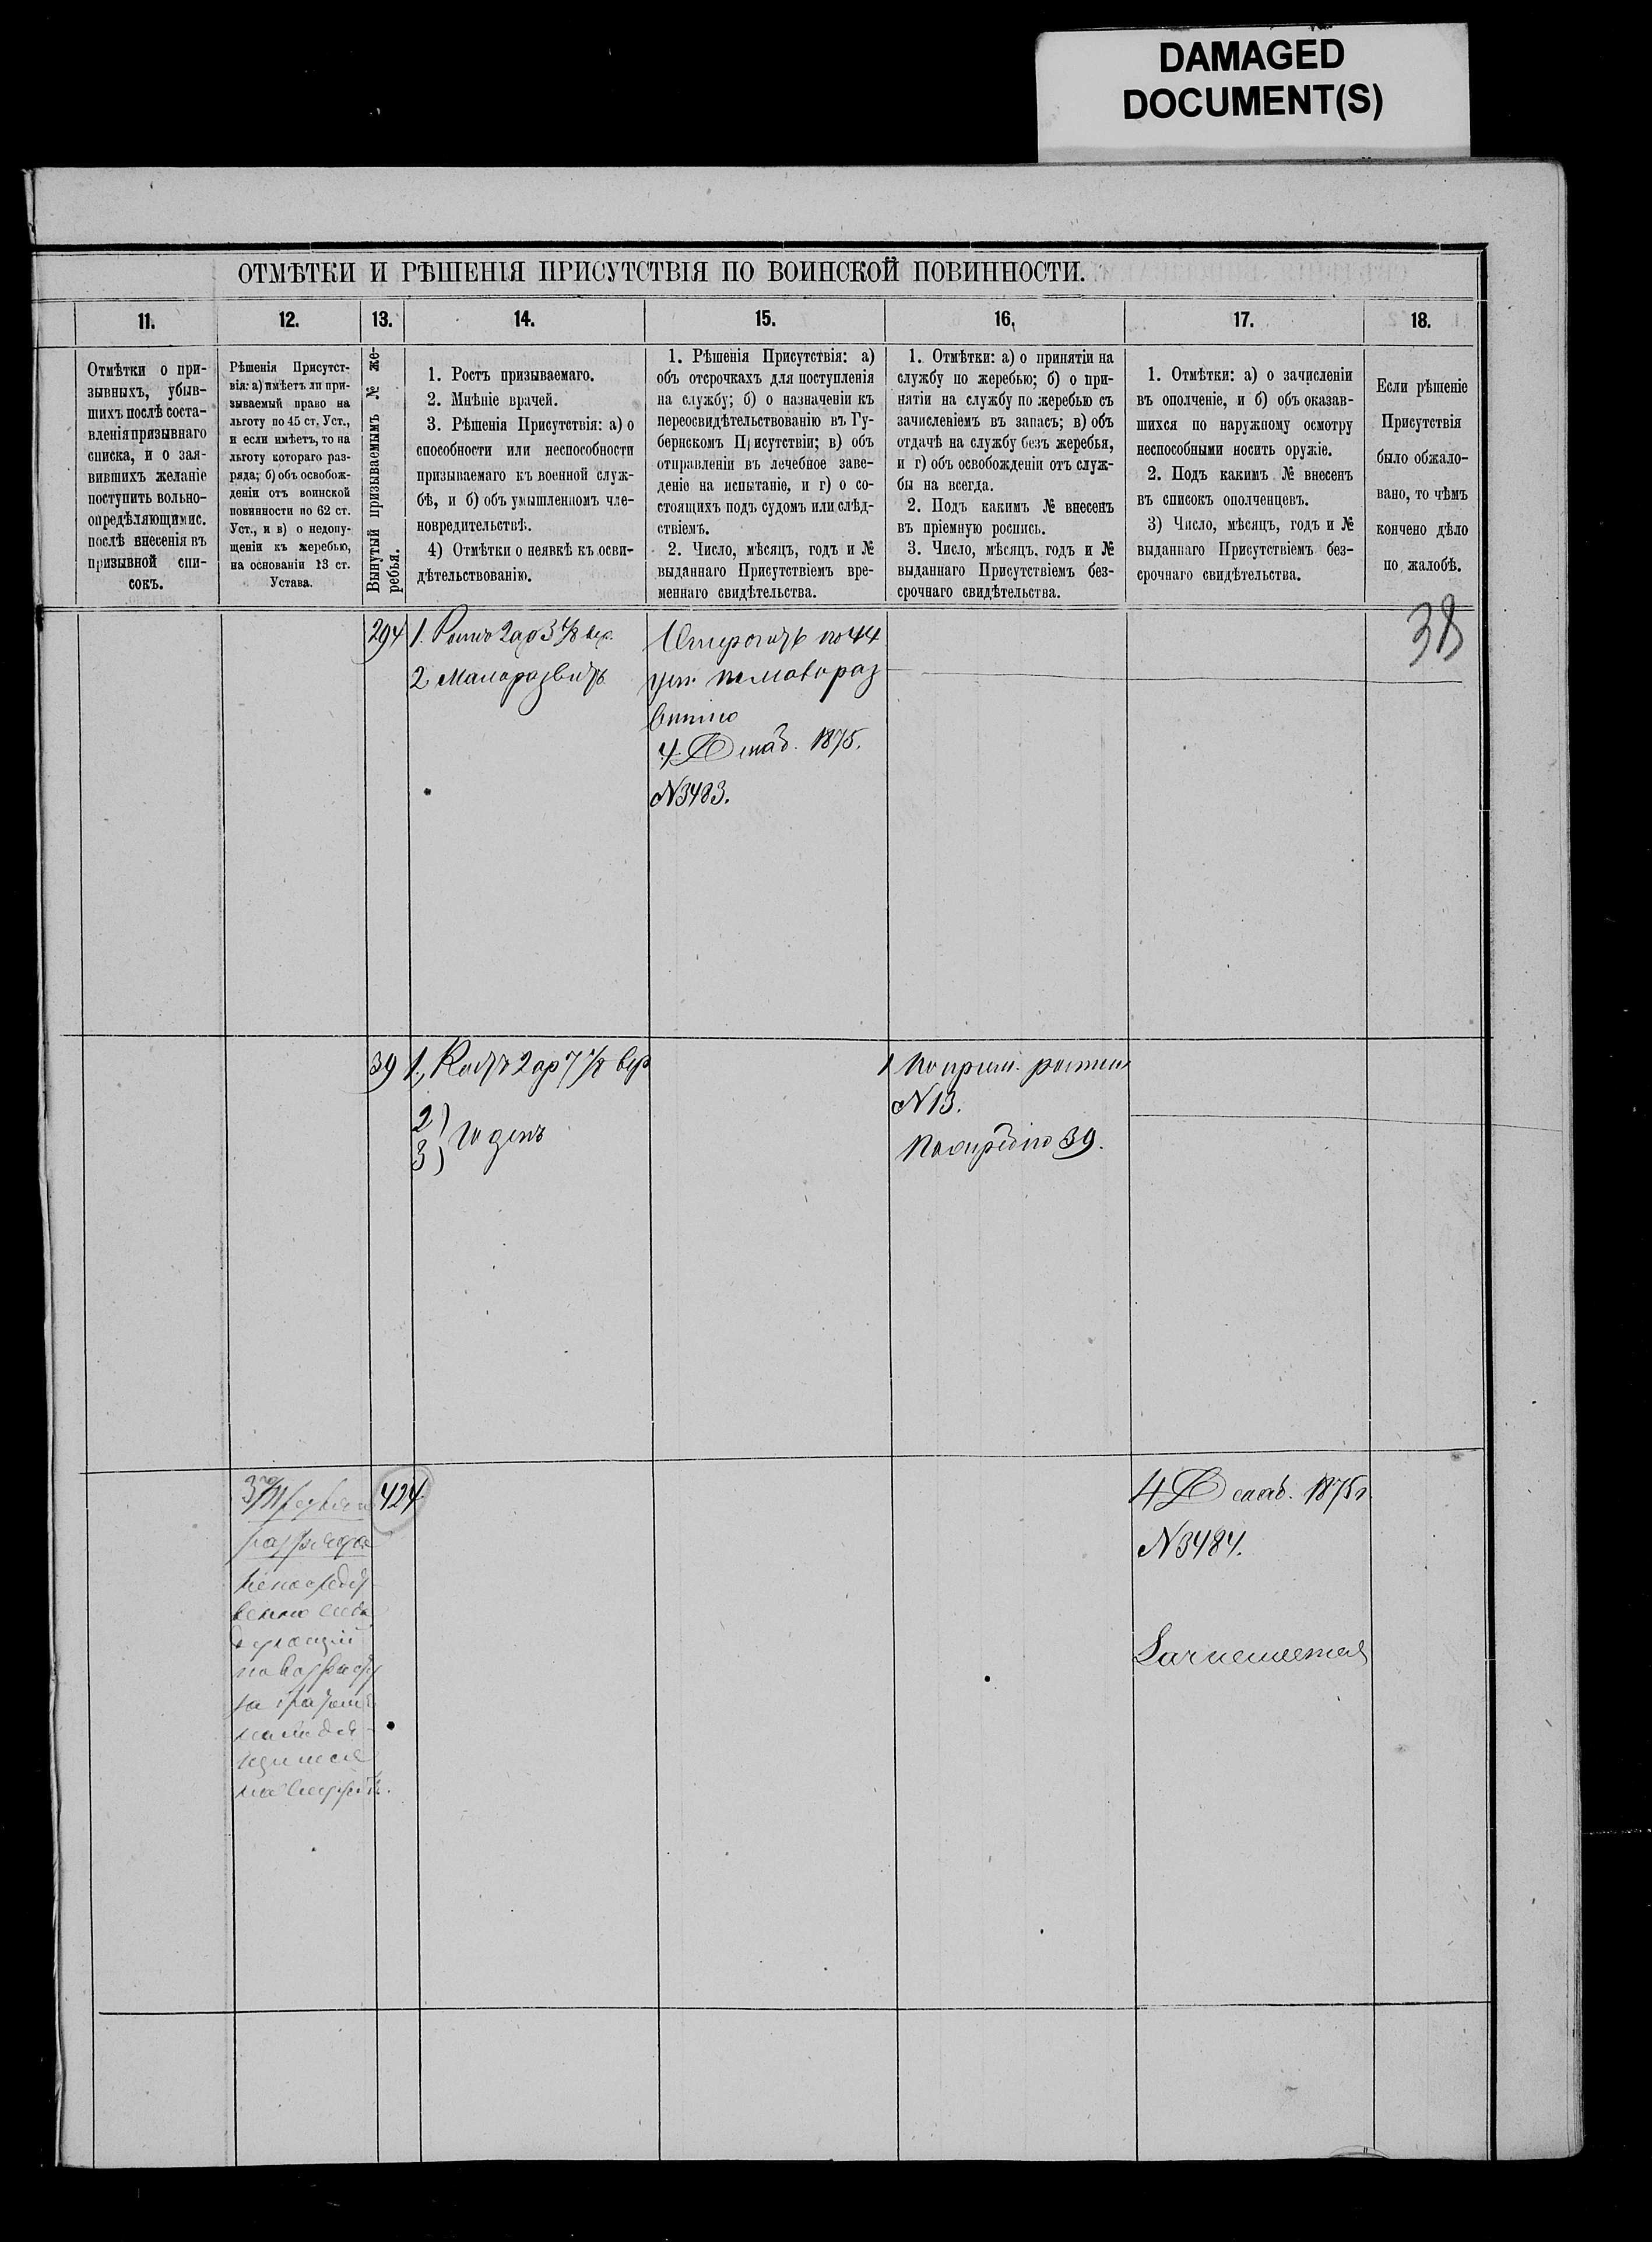 DAMAGED
DOCUMENT(S)
ОТМѢТКИ И РѢШЕНІЯ ПРИСУТСТВІЯ ПО ВОИНСКОЙ ПОВИННОСТИ.
11.
12.
13.
14.
15.
16.
17.
18.
Отмѣтки о при-
зывныхъ, убыв-
шихъ послѣ соста-
вленія призывнаго
списка, и о зая-
вившихъ желаніе
поступить вольно-
опредѣляющимис.
послѣ внесенія въ
призывной спи-
сокъ.
Рѣшенія Присутст-
вія: а) имѣетъ ли при-
зываемый право на
льготу по 45 ст. Уст.,
и если имѣетъ, то на
льготу котораго раз-
ряда; б) объ освобож-
деніи отъ воинской
повинности по 62 ст.
Уст., и в) о недопу-
щеніи къ жеребью,
на основаніи 13 ст.
Устава.
Вынутый призываемымъ № же-
ребья.
1. Ростъ призываемаго.
2. Мнѣніе врачей.
3. Рѣшенія Присутствія: а) о
способности или неспособности
призываемаго къ военной служ-
бѣ, и б) объ умышленномъ чле-
новредительствѣ.
4) Отмѣтки о неявкѣ къ осви-
дѣтельствованію.
1. Рѣшенія Присутствія: а)
объ отсрочкахъ для поступленія
на службу; б) о назначеніи къ
переосвидѣтельствованію въ Гу-
бернскомъ Присутствіи; в) объ
отправленіи въ лечебное заве-
деніе на испытаніе, и г) о со-
стоящихъ подъ судомъ или слѣд-
ствіемъ.
2. Число, мѣсяцъ, годъ и №
выданнаго Присутствіемъ вре-
меннаго свидѣтельства.
1. Отмѣтки: а) о принятіи на
службу по жеребью; б) о при-
нятіи на службу по жеребью съ
зачисленіемъ въ запасъ; в) объ
отдачѣ на службу безъ жеребья,
и г) объ освобожденіи отъ служ-
бы на всегда.
2. Подъ какимъ № внесенъ
въ пріемную роспись.
3. Число, мѣсяцъ, годъ и №
выданнаго Присутствіемъ без-
срочнаго свидѣтельства.
1. Отмѣтки: а) о зачисленіи
въ ополченіе, и б) объ оказав-
шихся по наружному осмотру
неспособными носить оружіе.
2. Подъ какимъ № внесенъ
въ списокъ ополченцевъ.
3) Число, мѣсяцъ, годъ и №
выданнаго Присутствіемъ без-
срочнаго свидѣтельства.
Если рѣшеніе
Присутствія
было обжало-
вано, то чѣмъ
кончено дѣло
по жалобѣ.
38
294
1. Ростъ 2 ар 3 4/8 вер.
2 Малоразвитъ
по 44
уст.
4 Декаб. 1875.
N 3483.
39
1., Ростъ 2 ар 7 1/8 вер
2)
3) годенъ
1 По
N 13.
По жребію 39.
3го
разряда
непосредст-
венно слѣ
дующій
по возрасту
за братомъ
находя-
щимся
на службѣ.
424
4 Декаб. 1875 г
N 3484.